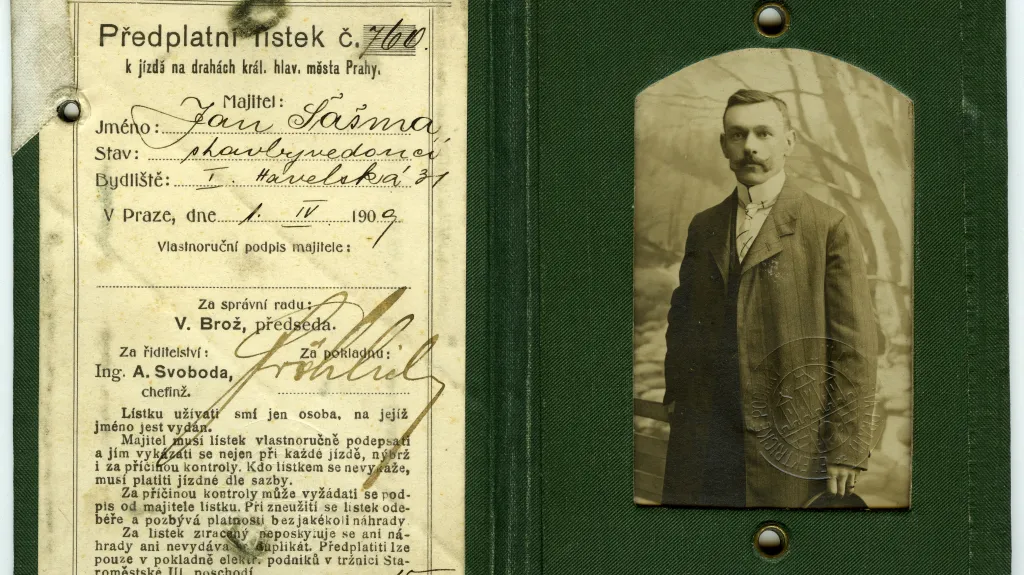 Předplatní lístek č. 760.
k jízdě na drahách král. hlav. města Prahy.
Majitel:
Jméno: Jan Šášma
Stav: stavbyvedoucí
Bydliště: I. Havelská 31
V Praze, dne 1. IV 1909
Vlastnoruční podpis majitele:
Za správní radu:
V. Brož, předseda.
Za řiditelství: Za pokladnu:
Ing. A. Svoboda,
chefinž.
Fröhlich
Lístku užívati smí jen osoba, na jejíž
jméno jest vydán.
Majitel musí lístek vlastnoručně podepsati
a jím vykázati se nejen při každé jízdě, nýbrž
i za příčinou kontroly. Kdo lístkem se nevykáže,
musí platiti jízdné dle sazby.
Za příčinou kontroly může vyžádati se pod-
pis od majitele lístku. Při zneužití se lístek ode-
béře a pozbývá platnosti bez jakékoli náhrady.
Za lístek ztracený neposkytuje se ani ná-
hrady ani nevydává duplikát. Předplatiti lze
pouze v pokladně elektr. podniků v tržnici Sta-
roměstské III. poschodí